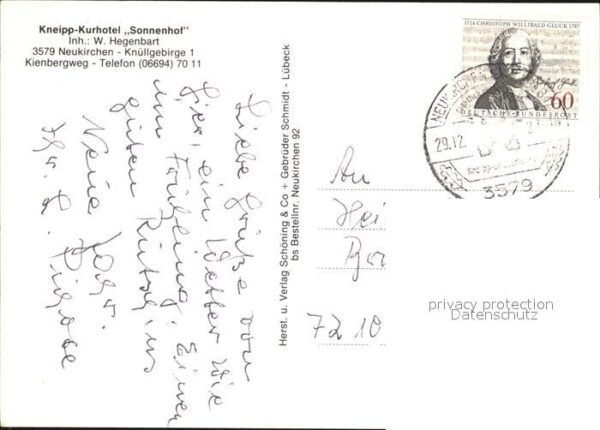 Kneipp-Kurhotel „Sonnenhof"
Inh.: W. Hegenbart
3579 Neukirchen - Knüllgebirge 1
Kienbergweg - Telefon (06694) 70 11
Liebe Grüße von
hier, ein Wetter wie
im Frühling! Einen
guten Rutsch ins
Neue Jahr.
Herst. u. Verlag Schöning & Co + Gebrüder Schmidt - Lübeck
bs Bestellnr. Neukirchen 92
1714 CHRISTOPH WILLIBALD GLUCK 1787
60
DEUTSCHE BUNDESPOST
29.12.
3579
An
Hei
7210
privacy protection
Datenschutz